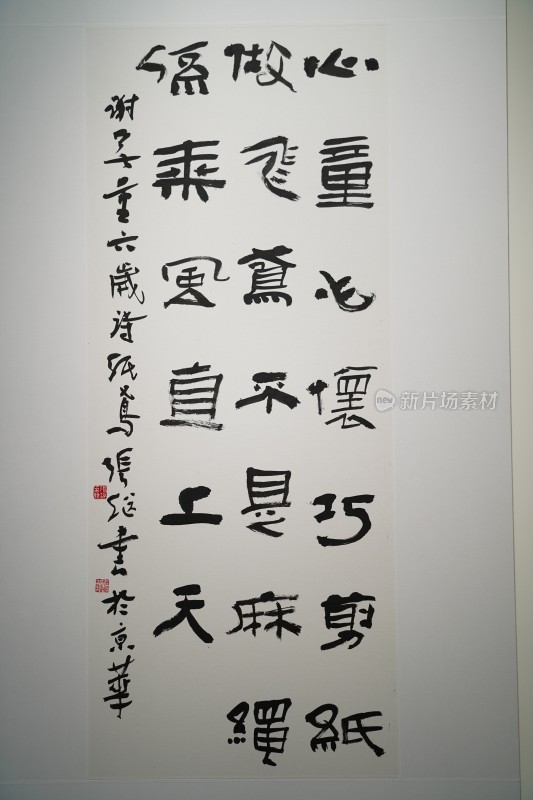 心童心懷巧剪紙
做飛鳶不是麻繩
係乘風直上天
謝童六歲詩紙鳶張繼書於京華
new 新片场素材